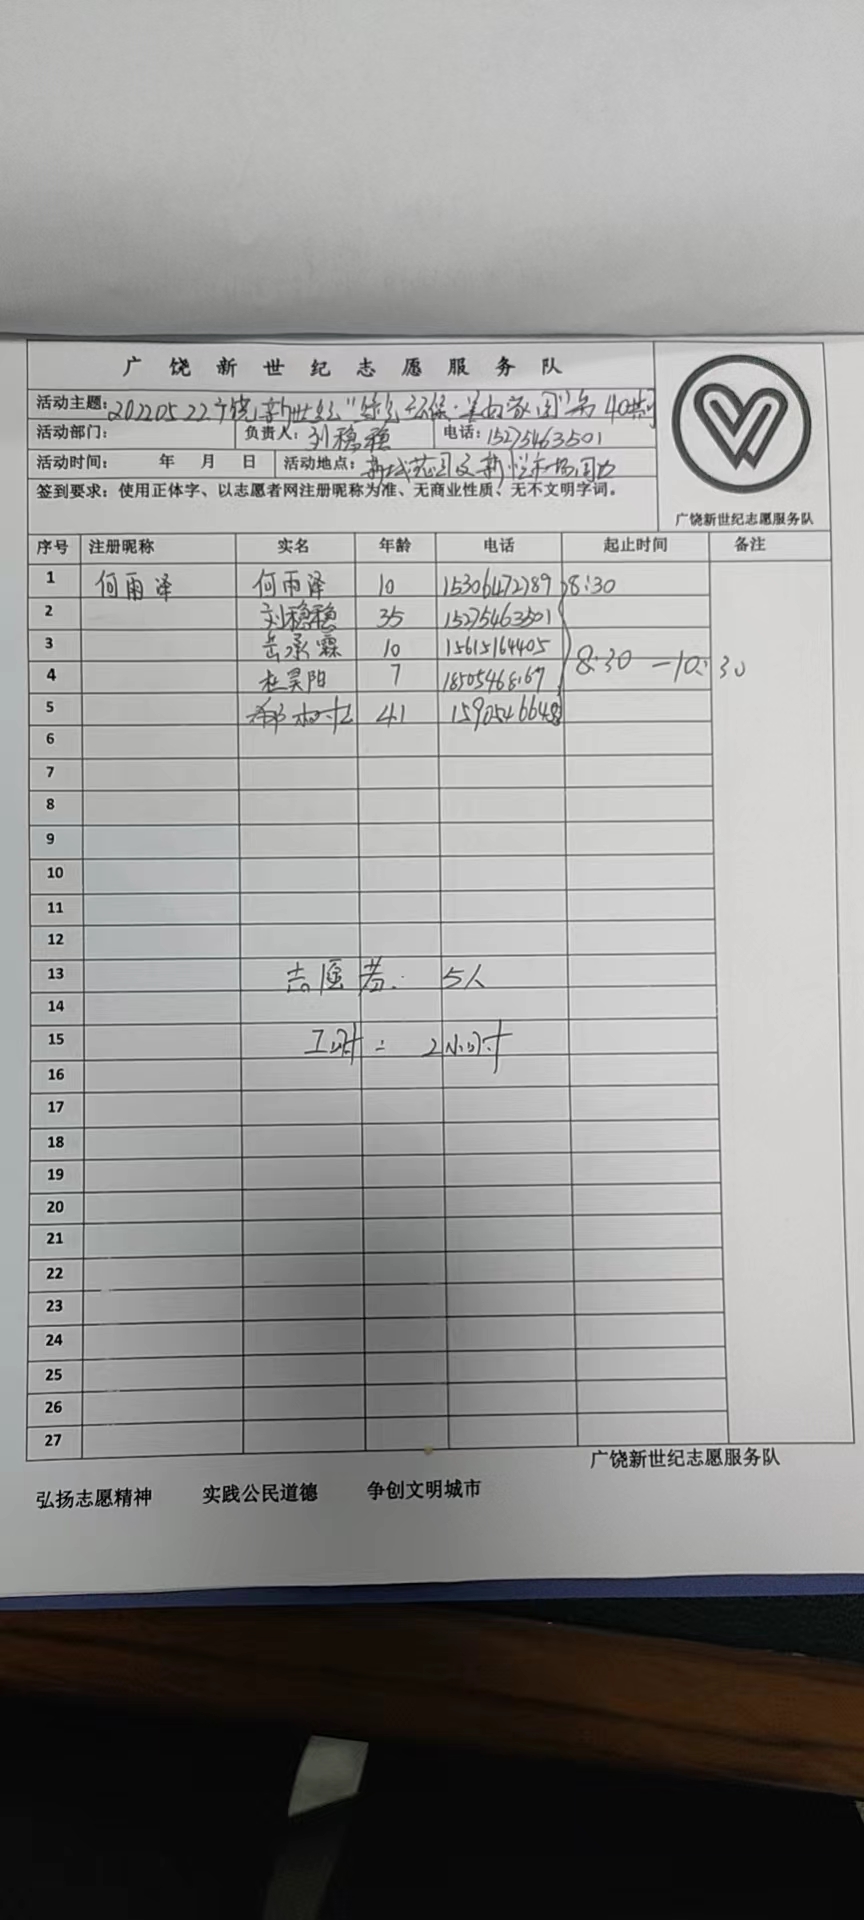 广饶新世纪志愿服务队
活动主题：20220522广饶新世纪"绿色环保·美丽家园"第40期
活动部门： 负责人：刘稳稳 电话：15275463501
活动时间： 年 月 日 活动地点：新城花园及新悦市场周边
签到要求：使用正体字、以志愿者网注册昵称为准、无商业性质、无不文明字词。
广饶新世纪志愿服务队
序号 注册昵称 实名 年龄 电话 起止时间 备注
1 何雨泽 何雨泽 10 15306472789 8:30
2 刘稳稳 35 15275463501
3 岳承霖 10 15615164405
4 杜昊阳 7 18505468167 8:30—10:30
5 41 15905466648
6
7
8
9
10
11
12
13 志愿者： 5人
14
15 工时： 2小时
16
17
18
19
20
21
22
23
24
25
26
27
广饶新世纪志愿服务队
弘扬志愿精神 实践公民道德 争创文明城市